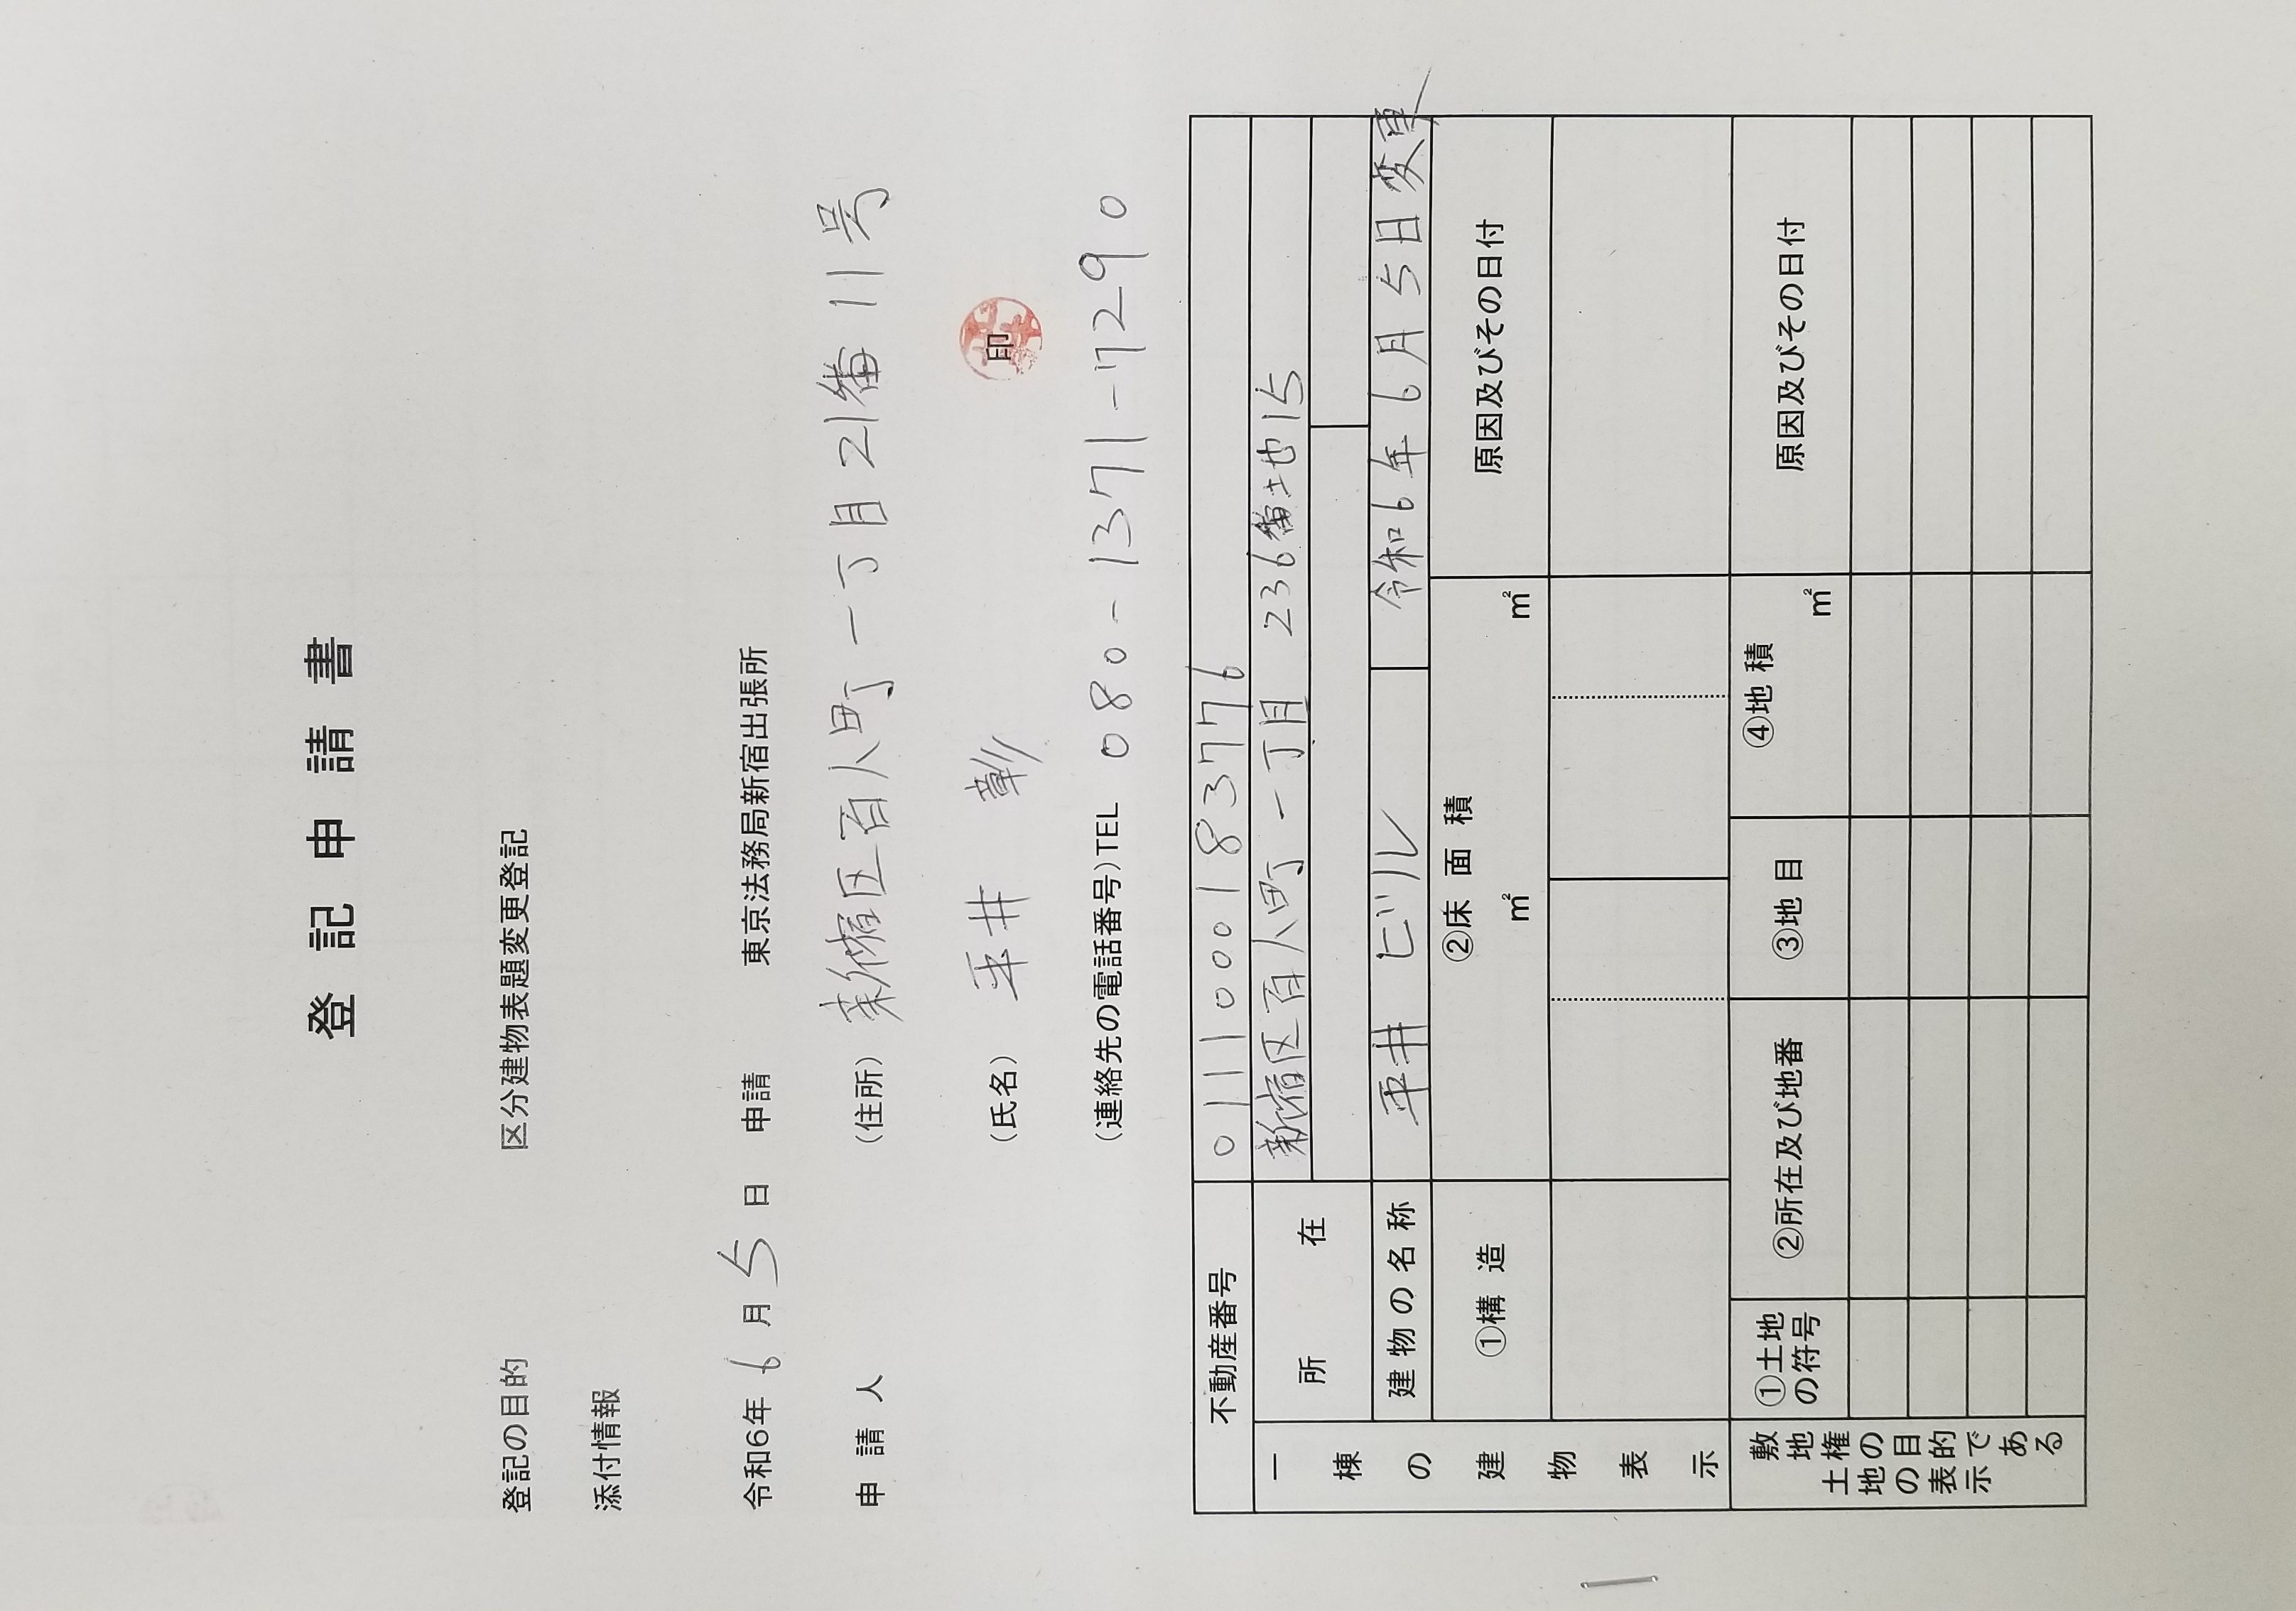 登記申請書
登記の目的 区分建物表題変更登記
添付情報
令和6年 6月 5日 申請 東京法務局新宿出張所
申請人 (住所) 新宿区百人町一丁目21番11号
(氏名) 平井 彰 印
(連絡先の電話番号)TEL 080-1371-7290
不動産番号 0111000183776
一棟の建物表示
所在 新宿区百人町一丁目 236番地15
建物の名称 平井 ビル 令和6年6月5日変更
①構造 ②床面積 ㎡ ㎡ 原因及びその日付
敷地権の目的である土地の表示
①土地の符号 ②所在及び地番 ③地目 ④地積 ㎡ 原因及びその日付